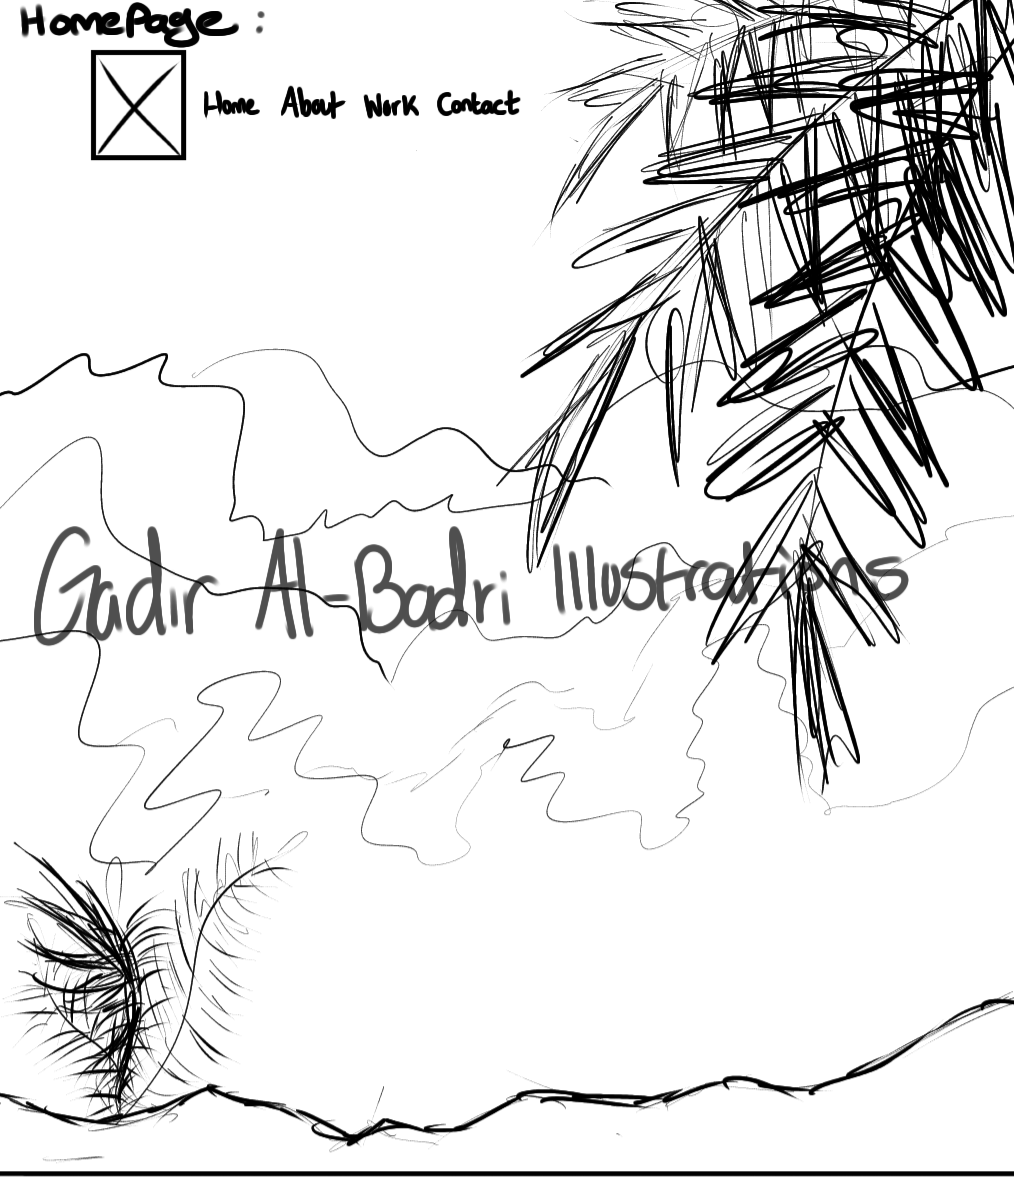 HomePage :
Home About Work Contact
Gadir Al-Badri Illustrations